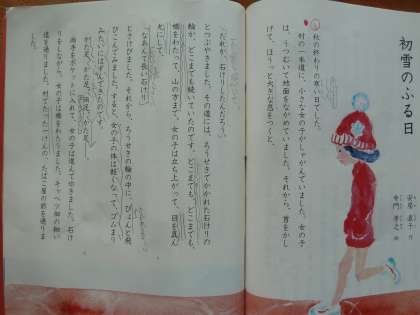 初雪のふる日
安房 直子 作
寺門 孝之 絵
秋の終わりの寒い日でした。
村の一本道に、小さな女の子がしゃがんでいました。女の子
は、うつむいて地面をながめていました。それから、首をかし
げて、ほうっと大きな息をつくと、
「だれが、石けりしたんだろう。」
とつぶやきました。その道には、ろうせきでかかれた石けりの
輪が、どこまでも続いていたのです。どこまでも、どこまでも、
橋をわたって、山の方まで。女の子は立ち上がって、目を真ん
丸にして、
「なあんて長い石けり。」
とさけびました。それから、ろうせきの輪の中に、ぴょんと飛
びこんでみました。すると、女の子の体は軽くなって、ゴムまり
みたいにはずんできたのです。
かた足、かた足、両足、かた足……。
両手をポケットに入れて、女の子は進んでゆきました。石け
りをしながら、女の子は橋をわたりました。キャベツ畑の細い
道を通りました。村でたった一けんの、たばこ屋の前を通りま
した。